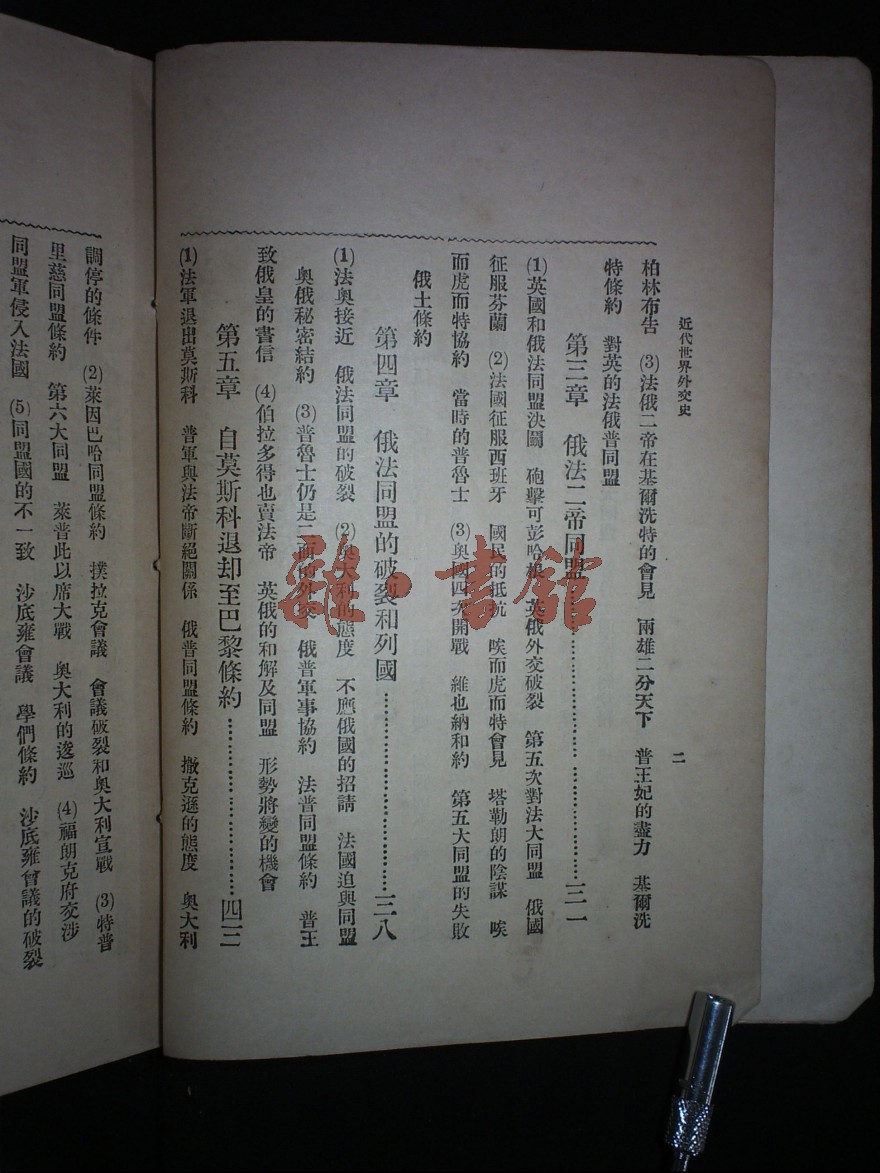 近代世界外交史
二
柏林布告 (3)法俄二帝在基爾洗特的會見 兩雄二分天下 普王妃的盡力 基爾洗
特條約 對英的法俄普同盟
第三章 俄法二帝同盟……三一
(1)英國和俄法同盟決鬪 砲擊可彭哈根 英俄外交破裂 第五次對法大同盟 俄國
征服芬蘭 (2)法國征服西班牙 國民的抵抗 唉而虎而特會見 塔勒朗的陰謀 唉
而虎而特協約 當時的普魯士 (3)奧國四次開戰 維也納和約 第五大同盟的失敗
俄土條約
第四章 俄法同盟的破裂和列國……三八
(1)法奧接近 俄法同盟的破裂 (2)奧大利的態度 不應俄國的招請 法國迫與同盟
奧俄秘密結約 (3)普魯士仍是二面的外交 俄普軍事協約 法普同盟條約 普王
致俄皇的書信 (4)伯拉多得也賣法帝 英俄的和解及同盟 形勢將變的機會
第五章 自莫斯科退却至巴黎條約……四三
(1)法軍退出莫斯科 普軍與法帝斷絕關係 俄普同盟條約 撒克遜的態度 奧大利
調停的條件 (2)萊因巴哈同盟條約 撲拉克會議 會議破裂和奧大利宣戰 (3)特普
里慈同盟條約 第六大同盟 萊普此以席大戰 奧大利的逡巡 (4)福朗克府交涉
同盟軍侵入法國 (5)同盟國的不一致 沙底雍會議 學們條約 沙底雍會議的破裂
雜·書館